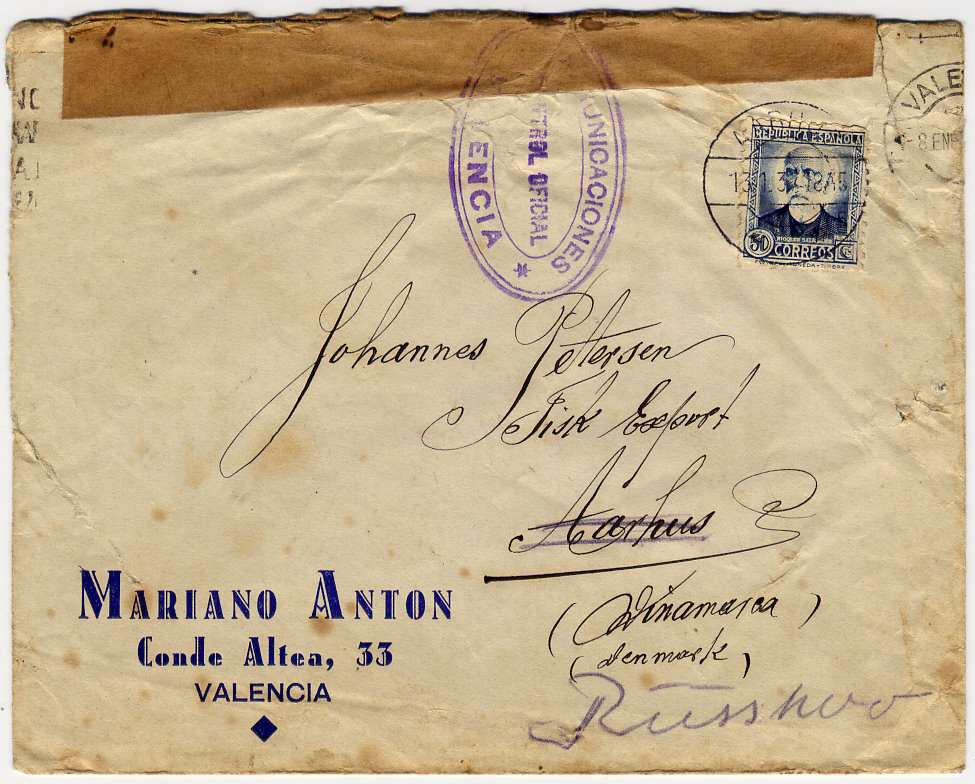 VALE
8 EN
COMUNICACIONES
CONTROL OFICIAL
VALENCIA
13.1.37 18
REPUBLICA ESPAÑOLA
30 CORREOS
Johannes Petersen
Fisk Export
Aarhus
(Dinamarca)
(denmark)
MARIANO ANTON
Conde Altea, 33
VALENCIA